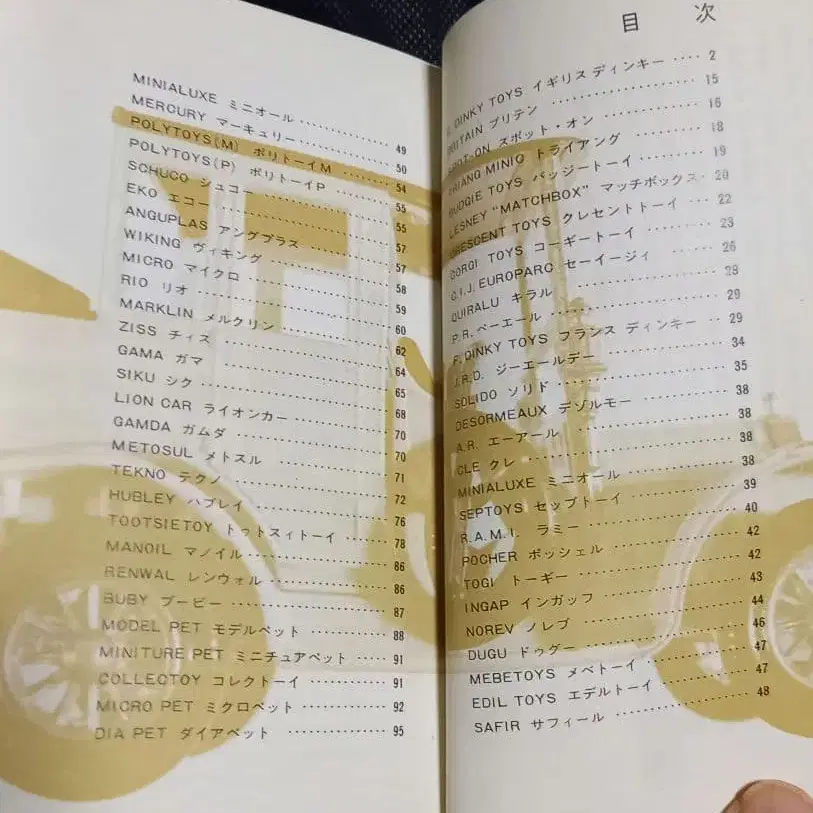 目 次
DINKY TOYS イギリス ディンキー ···· 2
BRITAIN ブリテン ···· 15
SPOT-ON スポット・オン ···· 16
TRIANG MINIC トライアング ···· 18
BUDGIE TOYS バッジートーイ ···· 19
LESNEY "MATCHBOX" マッチボックス ·· 20
CRESCENT TOYS クレセントトーイ ···· 22
CORGI TOYS コーギートーイ ···· 23
C.I.J. EUROPARC セーイージィ ···· 26
QUIRALU キラル ···· 28
P.R. ペーエール ···· 29
F. DINKY TOYS フランス ディンキー ···· 29
J.R.D. ジーエールデー ···· 34
SOLIDO ソリド ···· 35
DESORMEAUX デゾルモー ···· 38
A.R. エーアール ···· 38
CLE クレ ···· 38
MINIALUXE ミニオール ···· 38
SEPTOYS セップトーイ ···· 39
R.A.M.I. ラミー ···· 40
POCHER ポッシェル ···· 42
TOGI トーギー ···· 42
INGAP インガッフ ···· 43
NOREV ノレブ ···· 44
DUGU ドゥグー ···· 46
MEBETOYS メベトーイ ···· 47
EDIL TOYS エデルトーイ ···· 47
SAFIR サフィール ···· 48
MINIALUXE ミニオール ···· 49
MERCURY マーキュリー ···· 50
POLYTOYS(M) ポリトーイM ···· 54
POLYTOYS(P) ポリトーイP ···· 55
SCHUCO シュコー ···· 55
EKO エコー ···· 57
ANGUPLAS アングプラス ···· 57
WIKING ヴィキング ···· 58
MICRO マイクロ ···· 59
RIO リオ ···· 60
MARKLIN メルクリン ···· 62
ZISS チィス ···· 64
GAMA ガマ ···· 65
SIKU シク ···· 68
LION CAR ライオンカー ···· 70
GAMDA ガムダ ···· 70
METOSUL メトスル ···· 71
TEKNO テクノ ···· 72
HUBLEY ハブレイ ···· 76
TOOTSIETOY トゥトスィトーイ ···· 78
MANOIL マノイル ···· 86
RENWAL レンウォル ···· 86
BUBY ブービー ···· 87
MODEL PET モデルペット ···· 88
MINITURE PET ミニチュアペット ···· 91
COLLECTOY コレクトーイ ···· 91
MICRO PET ミクロペット ···· 92
DIA PET ダイアペット ···· 95